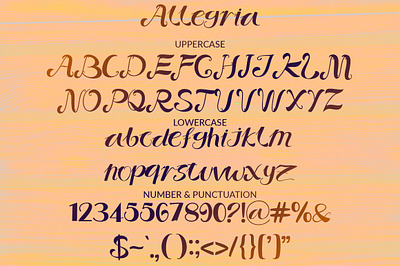 Allegria
UPPERCASE
ABCDEFGHIJKLM
NOPQRSTUVWXYZ
LOWERCASE
abcdefghijklm
nopqrstuvwxyz
NUMBER & PUNCTUATION
12345567890?!@#%&
$~`.,():;<>/{}[']”